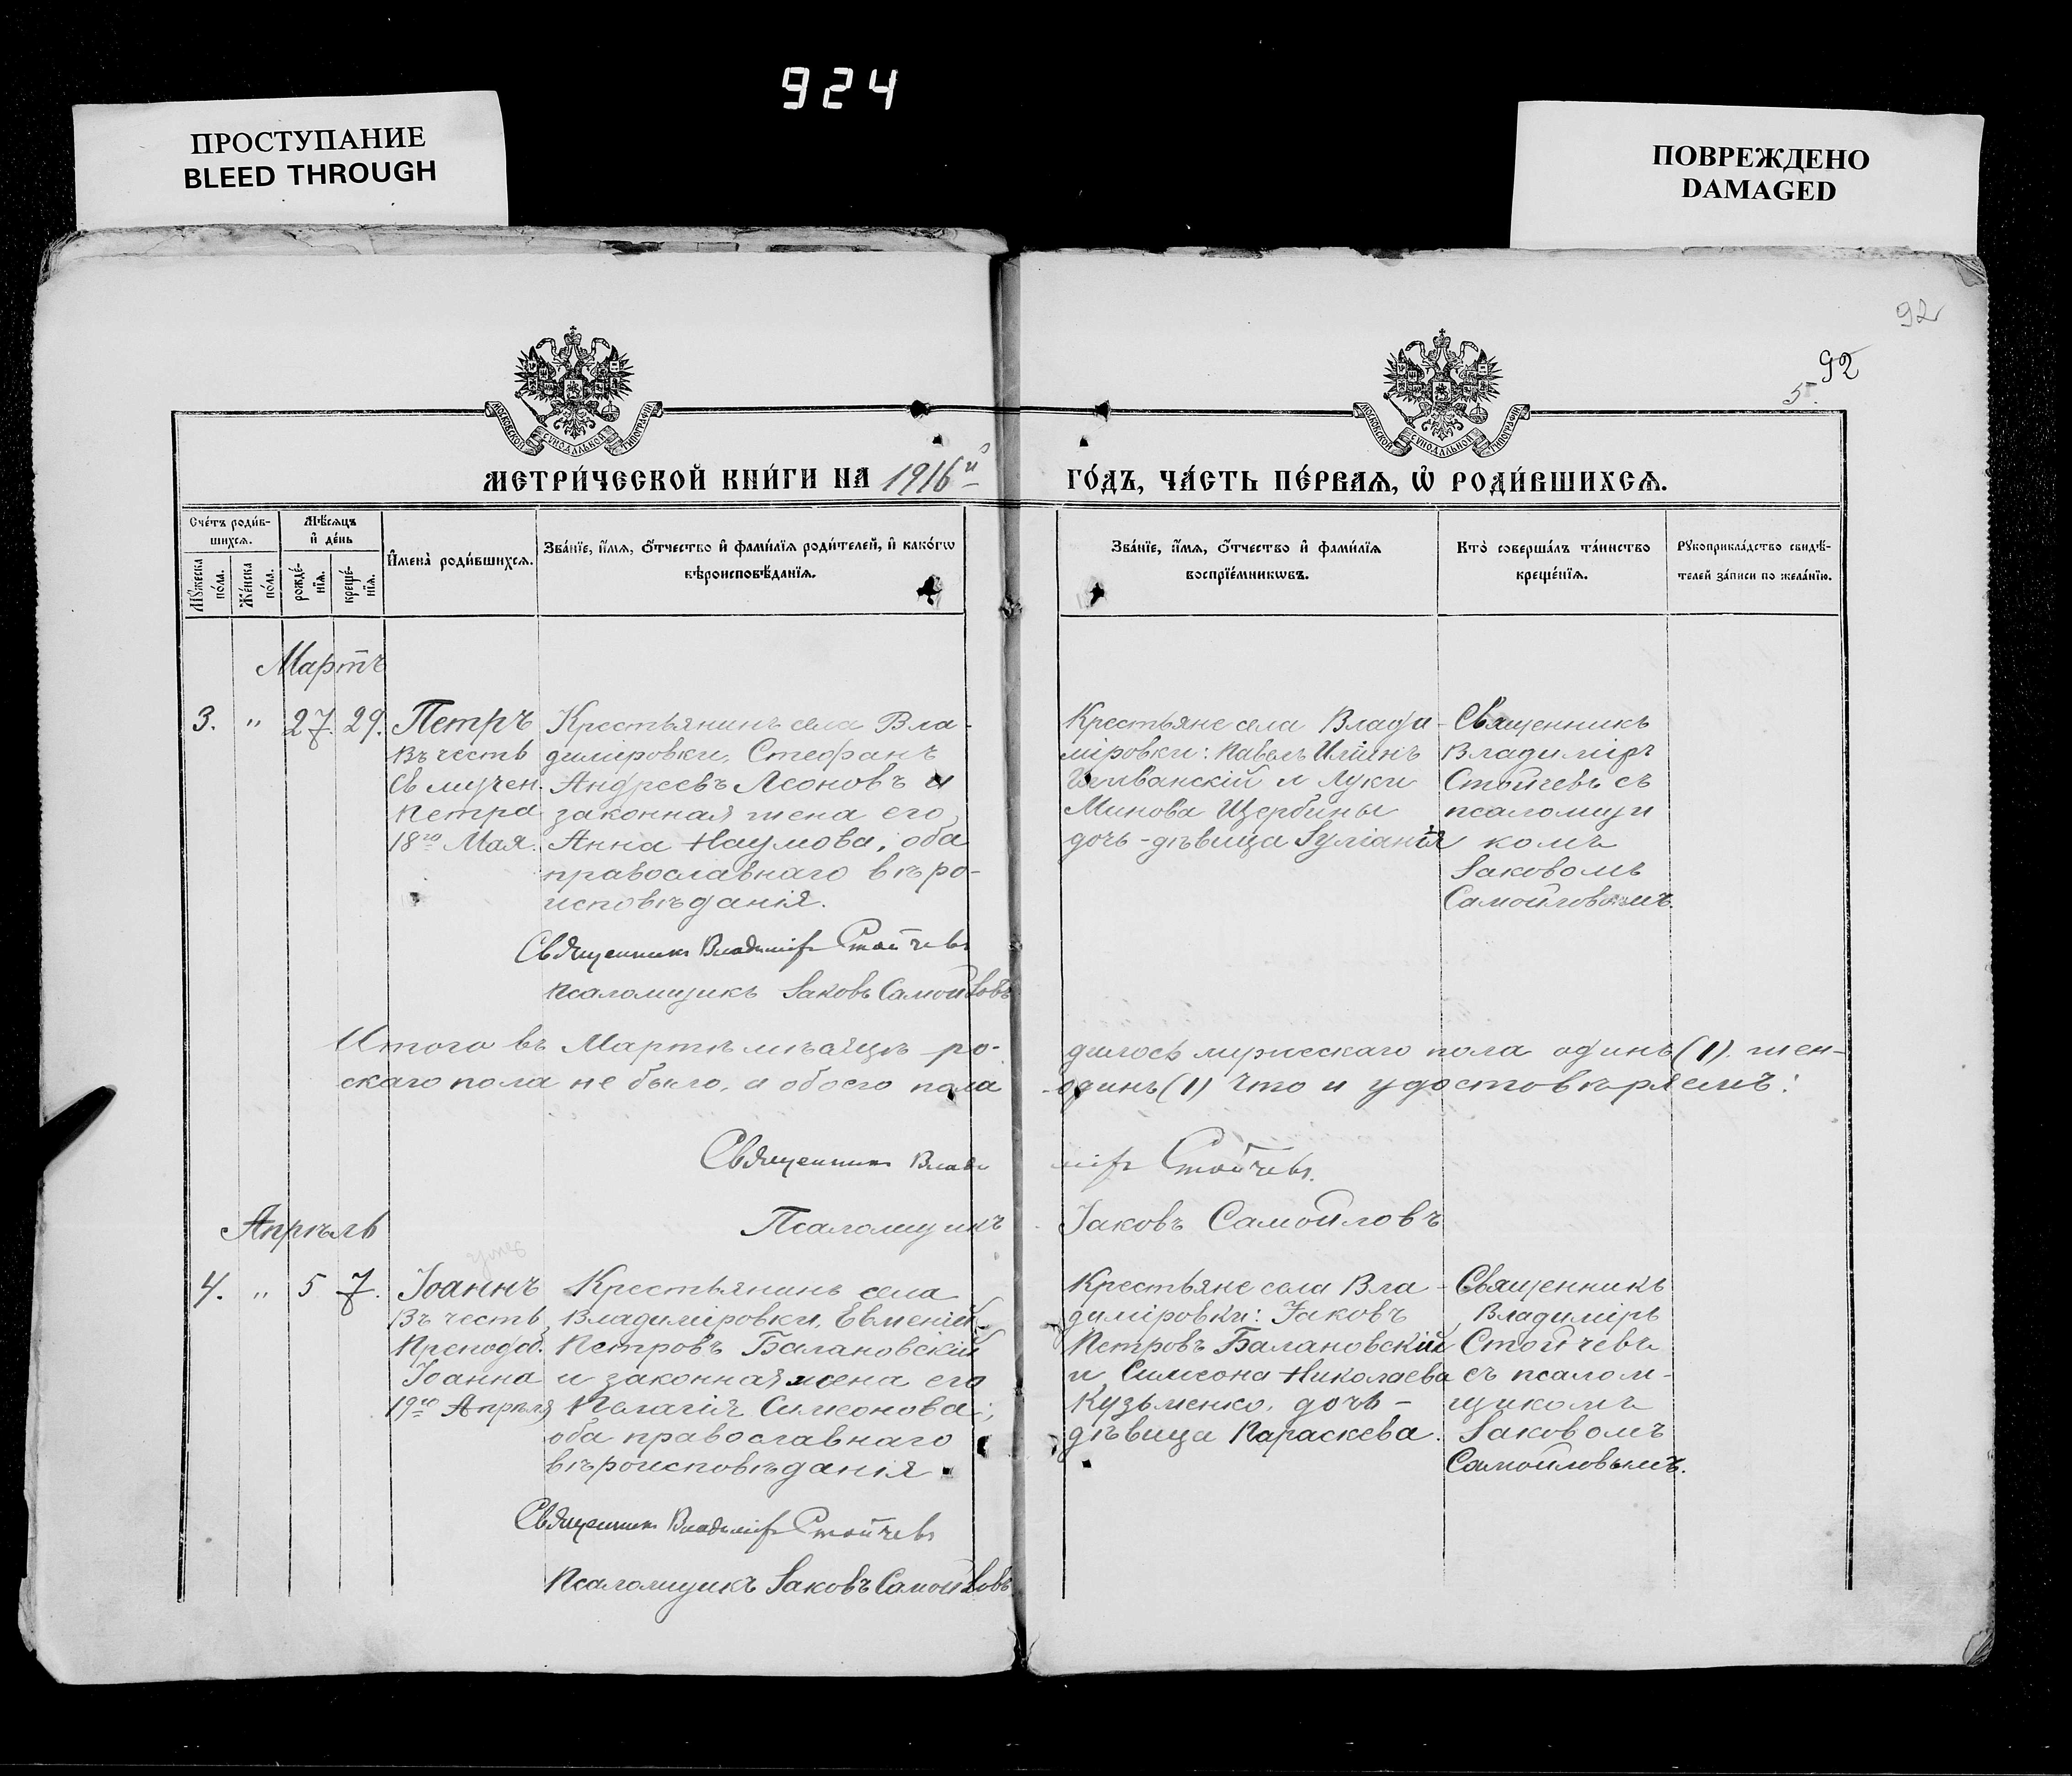 924
ПРОСТУПАНИЕ
BLEED THROUGH
ПОВРЕЖДЕНО
DAMAGED
92
92
5.
МОСКОВСКОЙ СѴНОДАЛЬНОЙ ТИПОГРАФІИ
МОСКОВСКОЙ СѴНОДАЛЬНОЙ ТИПОГРАФІИ
МЕТРИ́ЧЕСКОЙ КНИ́ГИ НА 1916й
ГО́ДЪ, ЧА́СТЬ ПЕ́РВАѦ, Ѡ РОДИ́ВШИХСѦ.
Сче́тъ роди́в-
шихсѧ.
Мꙋ́жеска
по́ла.
Же́нска
по́ла.
Мѣ́сѧцъ
и҆ де́нь
рожде́-
нїѧ.
креще́-
нїѧ.
И҆мена̀ роди́вшихсѧ.
Зва́нїе, и҆́мѧ, ѻ҆́тчество и҆ фами́лїѧ роди́телей, и҆ како́гѡ
вѣроисповѣ́данїѧ.
Зва́нїе, и҆́мѧ, ѻ҆́тчество и҆ фами́лїѧ
воспрїе́мникѡвъ.
Кто̀ соверша́лъ та́инство
креще́нїѧ.
Рꙋкоприкла́дство свидѣ́-
телей за́писи по жела́нїю.
Мартъ
3. " 27. 29. Петръ
Въ честь
Св мучен.
Петра
18го Мая.
Крестьянинъ села Вла-
димировки, Стефанъ
Андреевъ Леоновъ и
законная жена его
Анна Наумова, оба
православнаго вѣро-
исповѣданія.
Священникъ Владиміръ Стойчевъ
Псаломщикъ Іаковъ Самойловъ
Крестьяне села Влади-
міровки: Павелъ Ильинъ
и Луки
Минова Щербины
дочь-дѣвица Іуліанія
Священникъ
Владиміръ
Стойчевъ съ
псаломщи
комъ
Іаковомъ
Самойловымъ.
Итого въ Мартѣ мѣсяцѣ ро-
дилось мужескаго пола одинъ (1). жен-
скаго пола не было, а обоего пола
одинъ (1) Что и удостовѣряемъ:
Священникъ Влади
міръ Стойчевъ.
Псаломщикъ
Іаковъ Самойловъ
Апрѣль
4. " 5 7. Іоаннъ
Въ честь
Преподоб.
Іоанна
19го Апрѣля
Крестьянинъ села
Владиміровки, Евменій
Петровъ Балановскій
и законная жена его
Пелагія Симеонова;
оба православнаго
вѣроисповѣданія.
Священникъ Владиміръ Стойчевъ
Псаломщикъ Іаковъ Самойловъ
Крестьяне села Вла-
диміровки: Іаковъ
Петровъ Балановскій
и Симеона Николаева
Кузьменко, дочь-
дѣвица Параскева.
Священникъ
Владиміръ
Стойчевъ
съ псалом-
щикомъ
Іаковомъ
Самойловымъ.